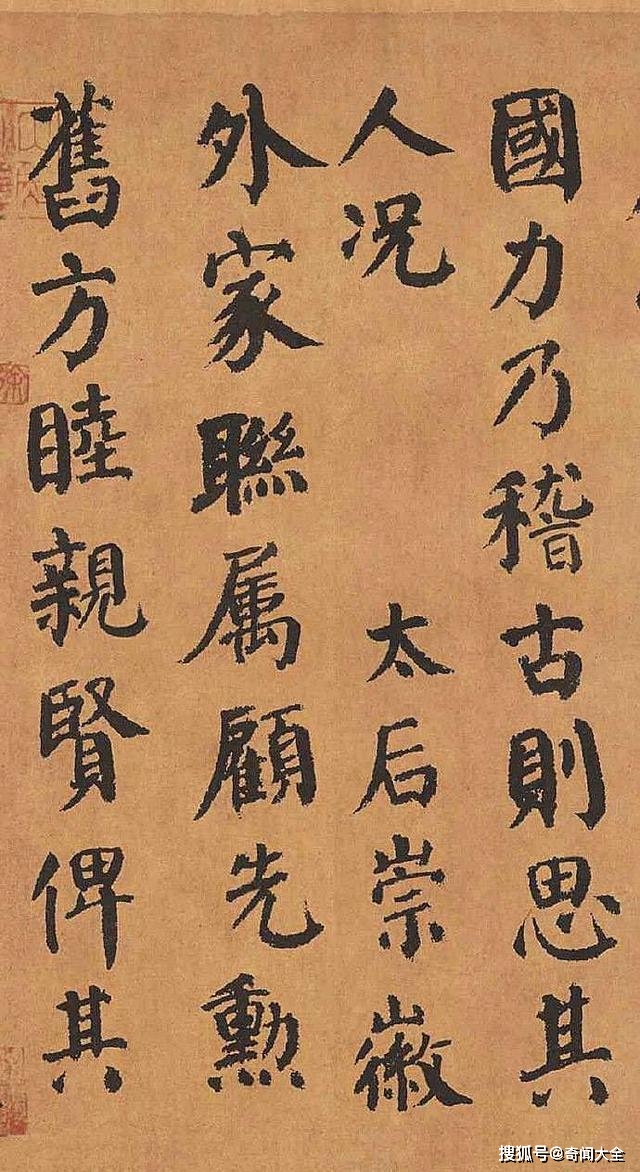 國力乃稽古則思其
人况 太后崇徽
外家聯属顧先勲
舊方睦親賢俾其
搜狐号@奇闻大全